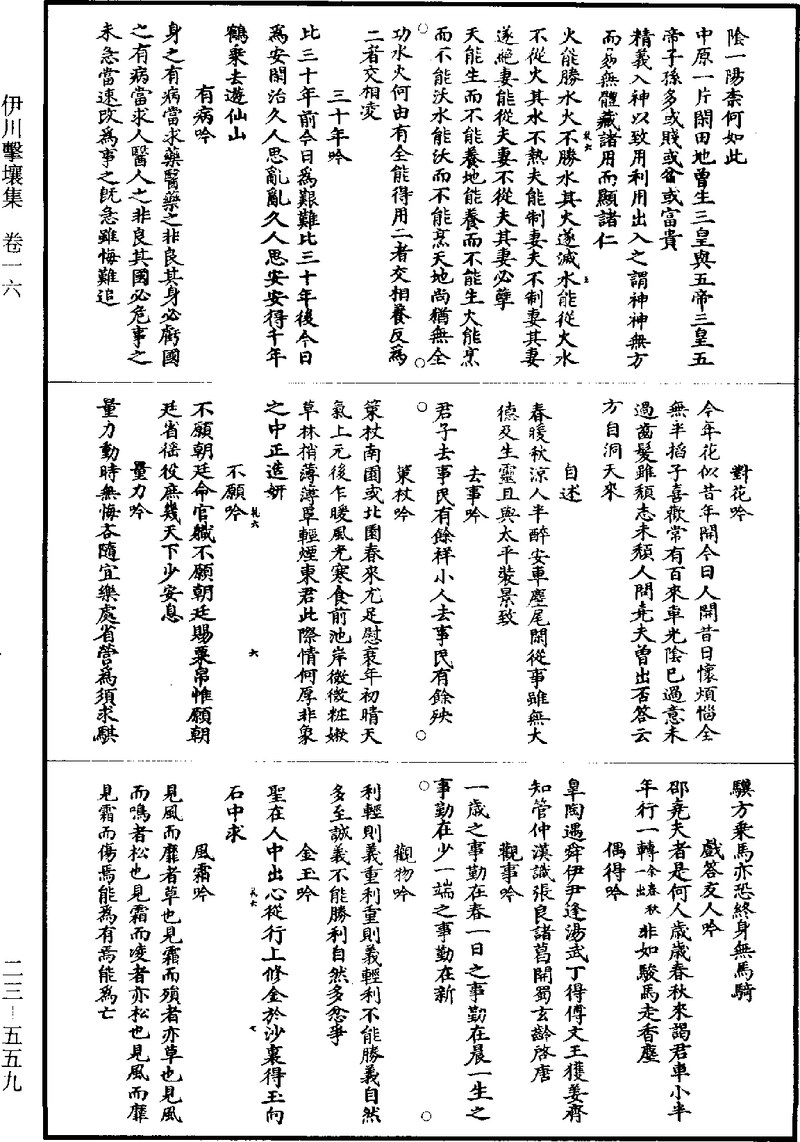 陰一陽柰何如此
中原一片閑田地曾生三皇與五帝三皇五
帝子孫多或賤或貧或富貴
精義入神以致用利用出入之謂神神無方
而易無體藏諸用而顯諸仁
火能勝水火不勝水其火遂滅水能從火水
不從火其水不熱夫能制妻夫不制妻其妻
遂絶妻能從夫妻不從夫其妻必孽
天能生而不能養地能養而不能生火能烹
而不能沃水能沃而不能烹天地尚猶無全
功水火何由有全能得用二者交相養反爲
二者交相凌
三十年吟
比三十年前今日爲艱難比三十年後今日
爲安閑治久人思亂亂久人思安安得千年
鶴乘去遊仙山
有病吟
身之有病當求藥醫藥之非良其身必虧國
之有病當求人醫人之非良其國必危事之
未急當速改爲事之旣急雖悔難追
對花吟
今年花似昔年開今日人開昔日懷煩惱全
無半掐子喜歡常有百來車光陰已過意未
過齒髮雖頹志未頹人問堯夫曾出否答云
方自洞天來
自述
春暖秋涼人半醉安車塵尾閑從事雖無大
德及生靈且與太平裝景致
去事吟
君子去事民有餘祥小人去事民有餘殃
策杖吟
策杖南園或北園春來尤足慰衰年初晴天
氣上元後乍暖風光寒食前池岸微微粧嫩
草林梢薄薄罩輕煙東君此際情何厚非象
之中正造妍
不願吟
不願朝廷命官軄不願朝廷賜粟帛惟願朝
廷省徭役庶幾天下少安息
量力吟
量力動時無悔吝隨宜樂處省營爲須求騏
驥方乘馬亦恐終身無馬騎
戲答友人吟
邵堯夫者是何人歳歳春秋來謁君車小半
年行一轉余春秋一出非如駿馬走香塵
偶得吟
臯陶遇舜伊尹逢湯武丁得傅文王獲姜齊
知管仲漢識張良諸葛開蜀玄齡啓唐
觀事吟
一歳之事勤在春一日之事勤在晨一生之
事勤在少一端之事勤在新
觀物吟
利輕則義重利重則義輕利不能勝義自然
多至誠義不能勝利自然多忿爭
金玉吟
聖在人中出心從行上修金於沙裏得玉向
石中求
風霜吟
見風而靡者草也見霜而殞者亦草也見風
而鳴者松也見霜而凌者亦松也見風而靡
見霜而傷焉能爲有焉能爲亡
伊川擊壤集 卷一六
二三-五五九